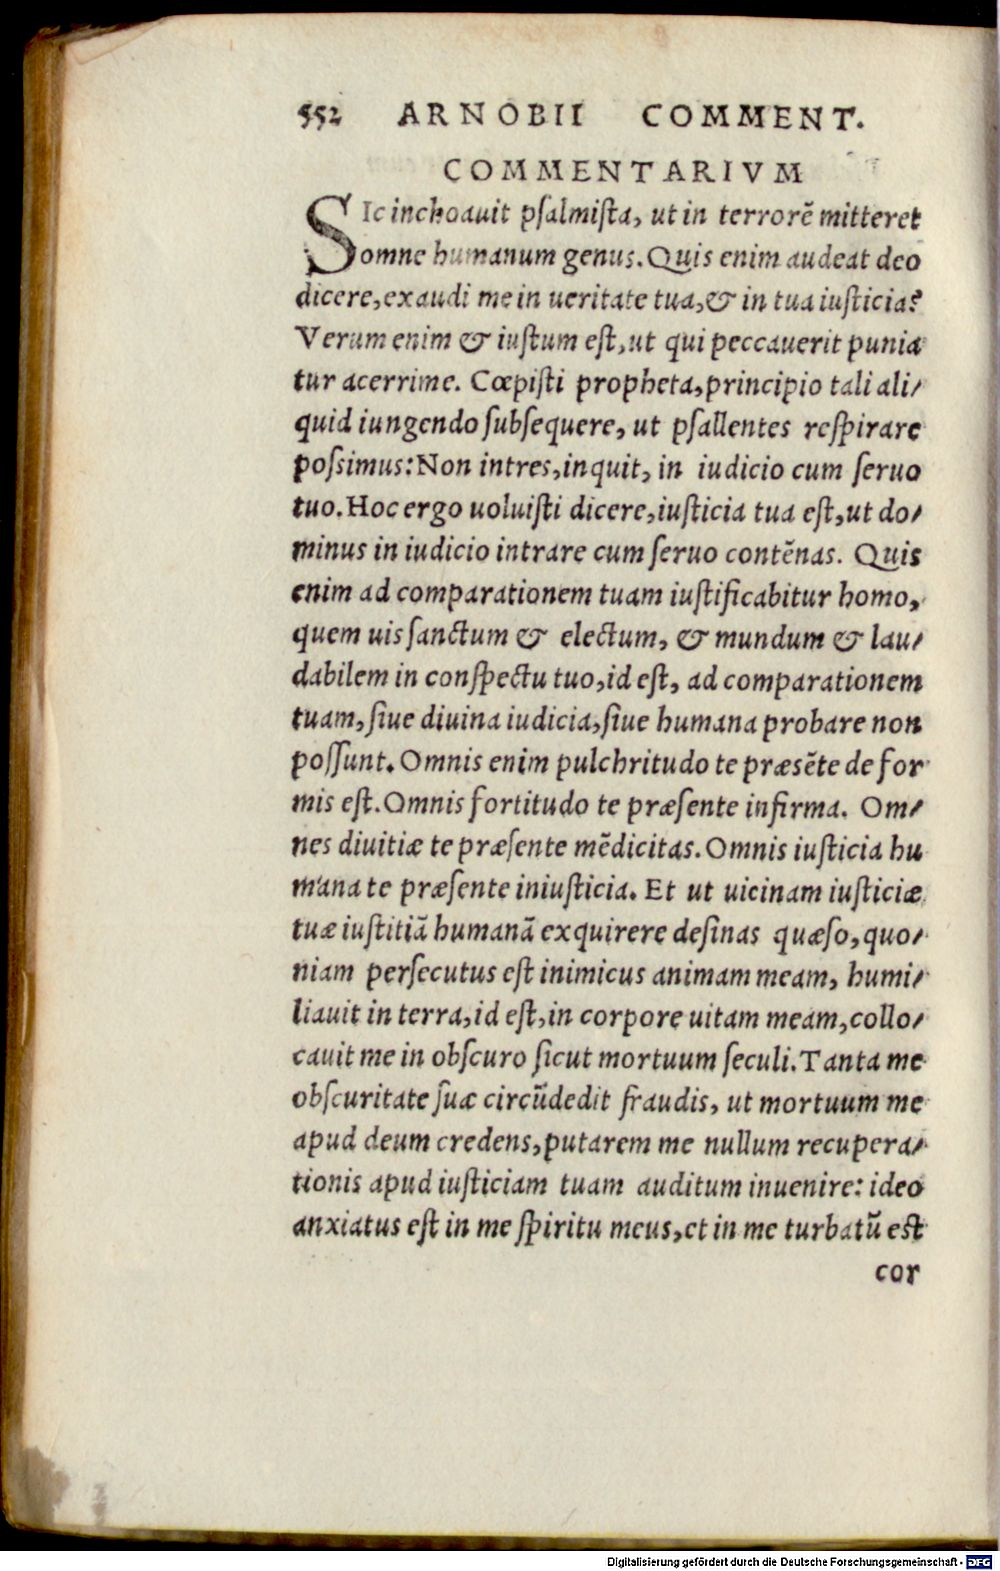 552 ARNOBII COMMENT.
COMMENTARIVM
SIc inchoauit psalmista, ut in terrorē mitteret
omne humanum genus. Quis enim audeat deo
dicere, exaudi me in ueritate tua, & in tua iusticia?
Verum enim & iustum est, ut qui peccauerit punia
tur acerrime. Cœpisti propheta, principio tali ali/
quid iungendo subsequere, ut psallentes respirare
possimus: Non intres, inquit, in iudicio cum seruo
tuo. Hoc ergo uoluisti dicere, iusticia tua est, ut do/
minus in iudicio intrare cum seruo contēnas. Quis
enim ad comparationem tuam iustificabitur homo,
quem uis sanctum & electum, & mundum & lau/
dabilem in conspectu tuo, id est, ad comparationem
tuam, siue diuina iudicia, siue humana probare non
possunt. Omnis enim pulchritudo te præsēte de for
mis est. Omnis fortitudo te præsente infirma. Om/
nes diuitiæ te præsente mēdicitas. Omnis iusticia hu
mana te præsente iniusticia. Et ut uicinam iusticiæ
tuæ iustitiā humanā exquirere desinas quæso, quo/
niam persecutus est inimicus animam meam, humi/
liauit in terra, id est, in corpore uitam meam, collo/
cauit me in obscuro sicut mortuum seculi. Tanta me
obscuritate suæ circūdedit fraudis, ut mortuum me
apud deum credens, putarem me nullum recupera/
tionis apud iusticiam tuam auditum inuenire: ideo
anxiatus est in me spiritu meus, et in me turbatū est
cor
Digitalisierung gefördert durch die Deutsche Forschungsgemeinschaft - DFG